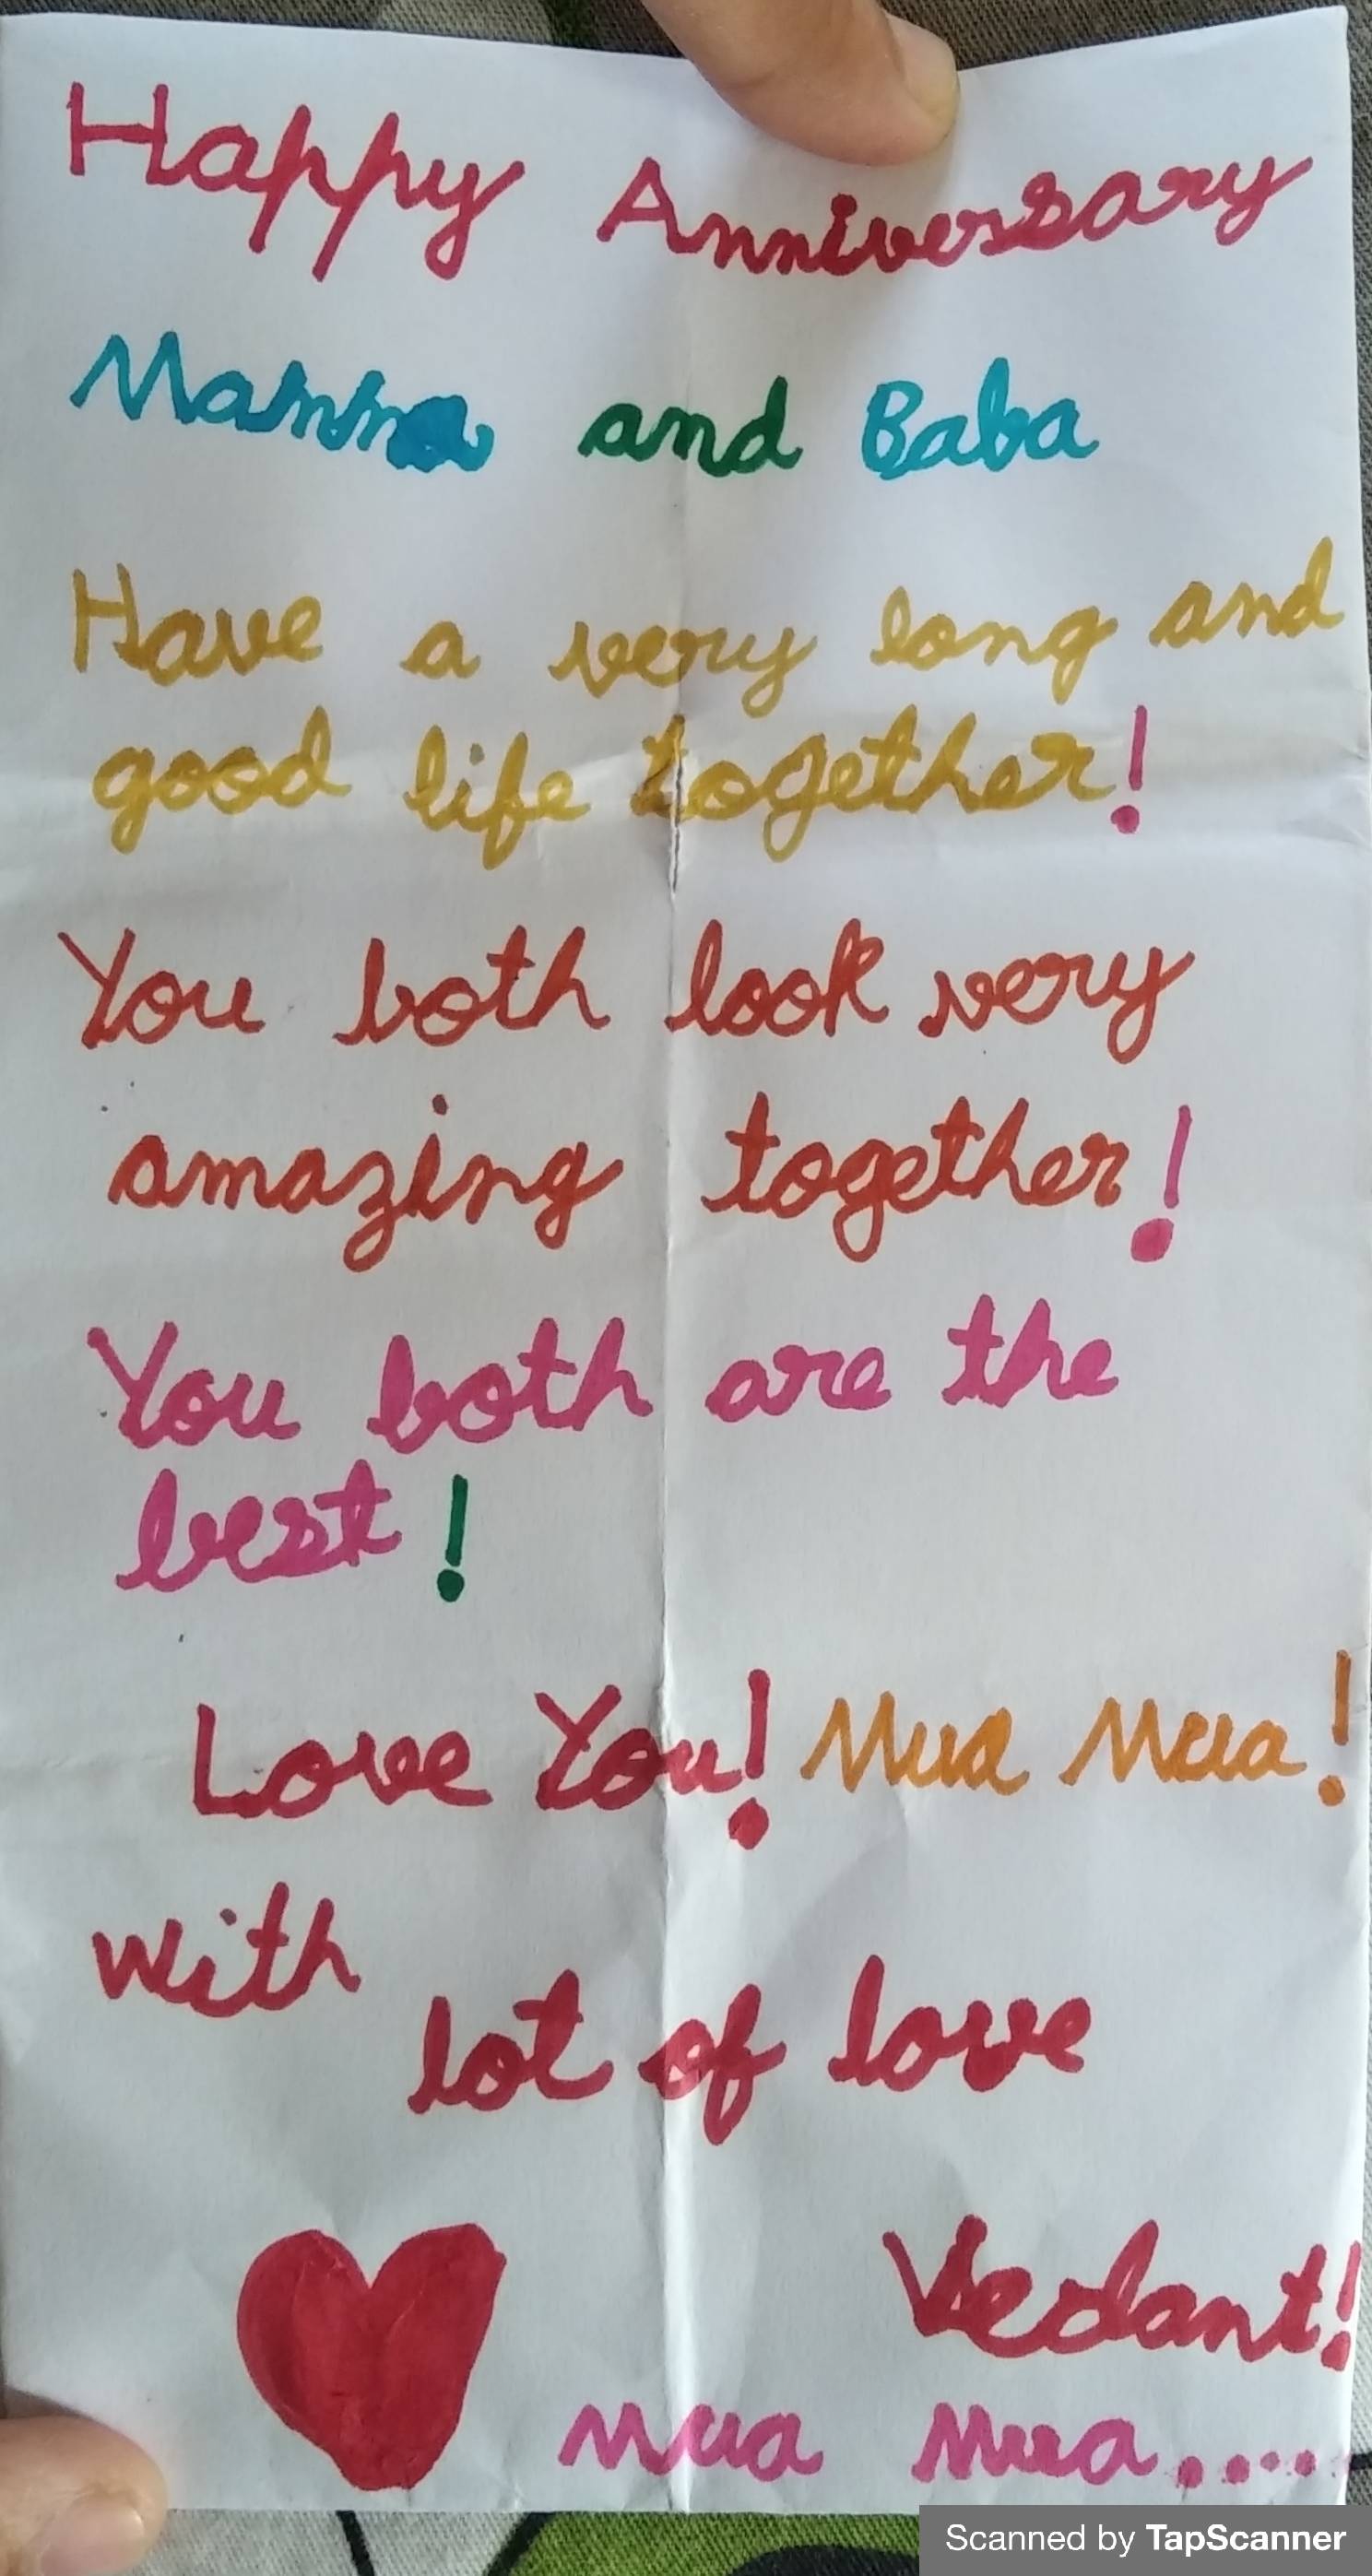 Happy Anniversary
Mamma and Baba
Have a very long and
good life together!
You both look very
amazing together!
You both are the
best!
Love You! Mua Mua!
with
lot of love
Vedant!
Mua Mua....
Scanned by TapScanner